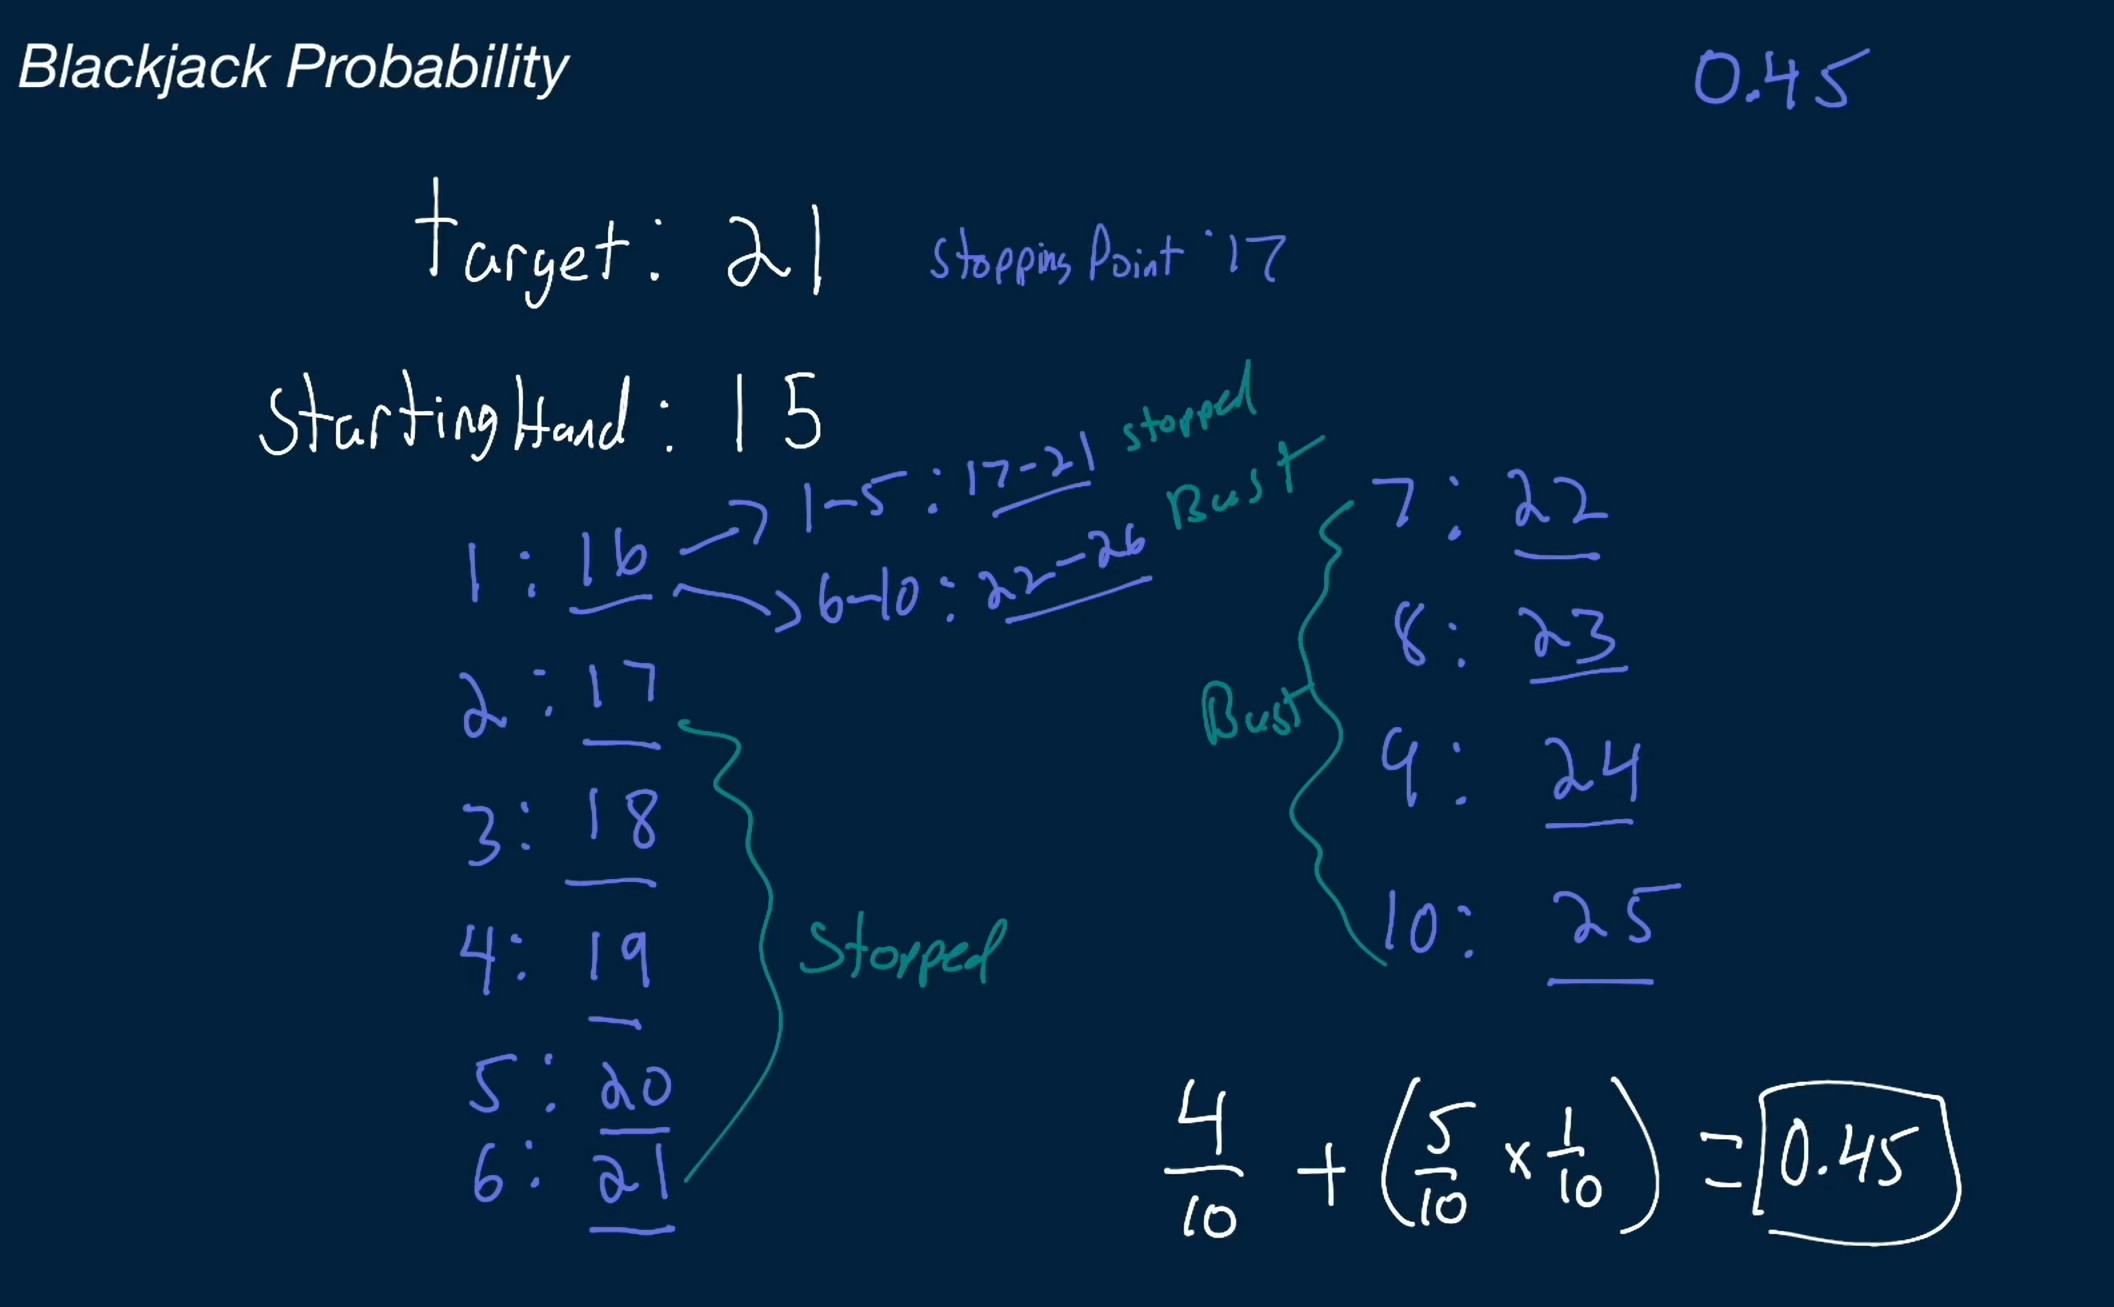 Blackjack Probability
0.45
Target: 21
Stopping Point: 17
Starting Hand: 15
1: 16
1-5: 17-21 stopped
6-10: 22-26 Bust
2: 17
3: 18
4: 19
5: 20
6: 21
Stopped
7: 22
8: 23
9: 24
10: 25
Bust
4/10 + (5/10 x 1/10) = 0.45